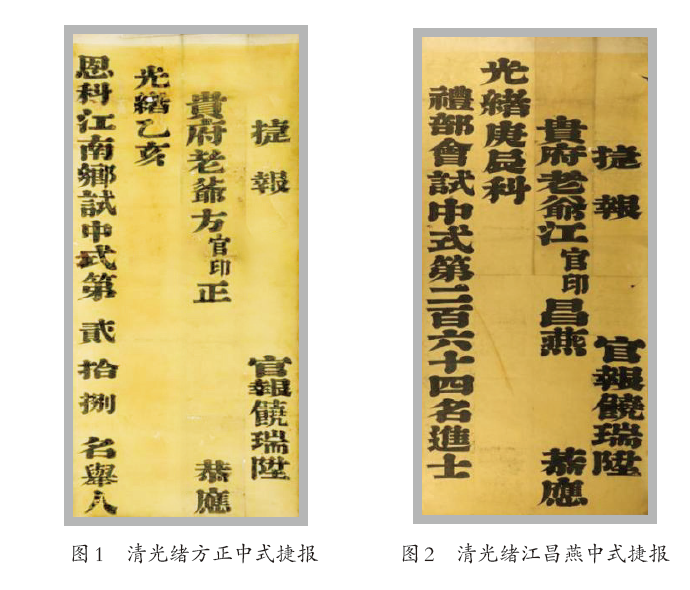 捷報 官報饒瑞陞
貴府老爺方官印正 恭應
光緒乙亥
恩科江南鄉試中式第貳拾捌名舉人
捷報 官報饒瑞陞
貴府老爺江官印昌燕 恭應
光緒庚辰科
禮部會試中式第二百六十四名進士
图1 清光绪方正中式捷报
图2 清光绪江昌燕中式捷报